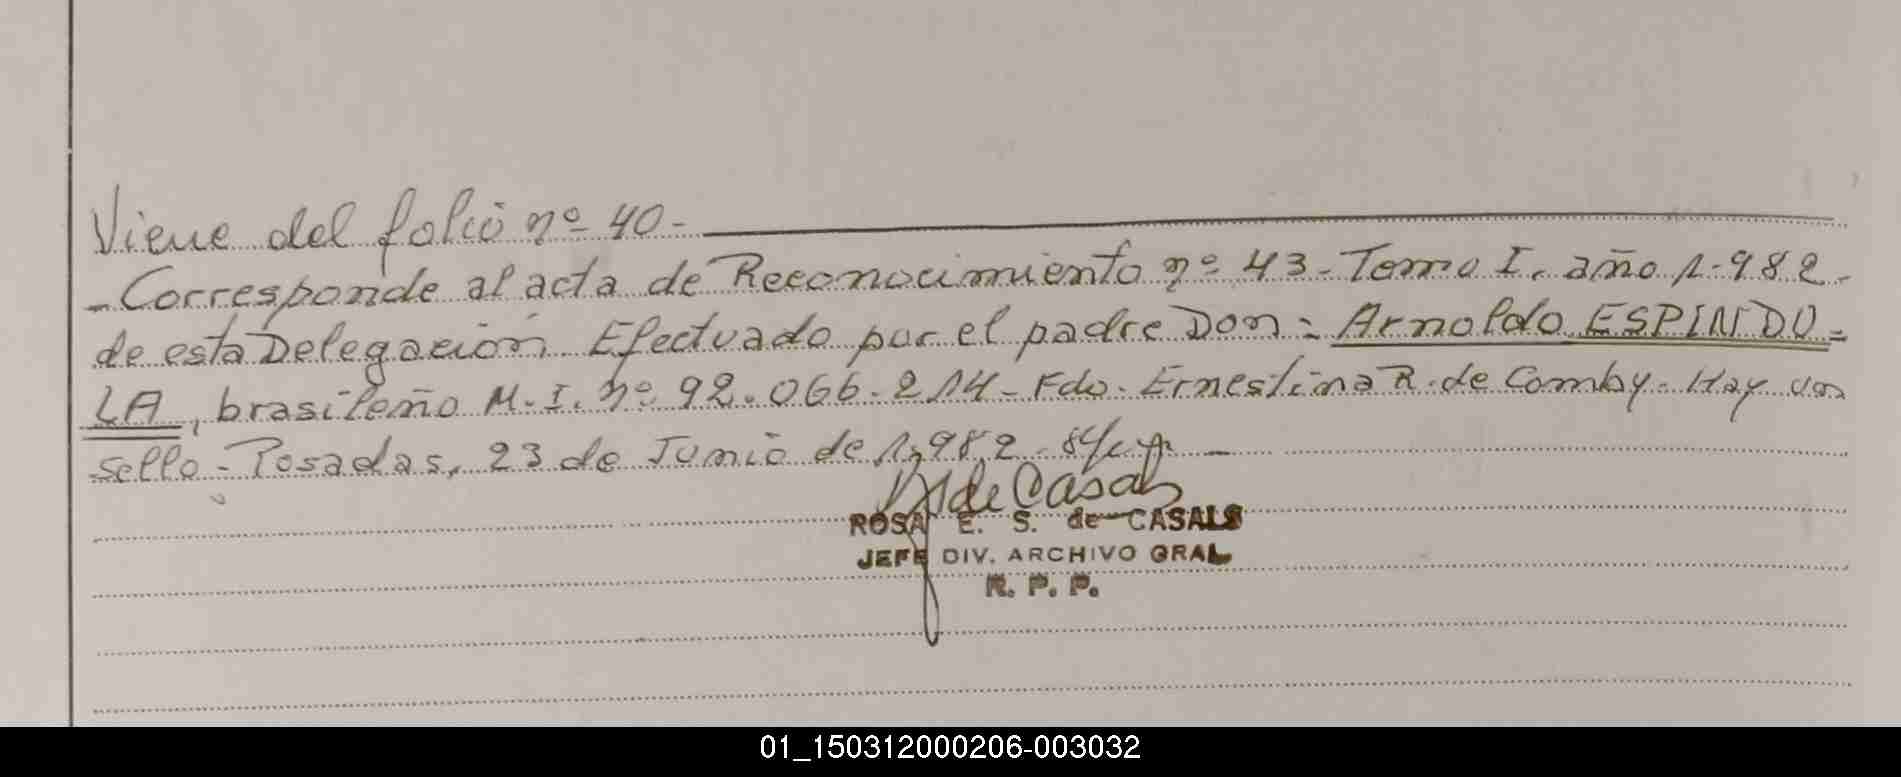 Viene del folio nº 40-
- Corresponde al acta de Reconocimiento nº 43- Tomo I. año 1.982-
de esta Delegación. Efectuado por el padre Don: Arnoldo ESPINDO=
LA, brasileño M.I. nº 92.066.214- Fdo. Ernestina R. de Comby- Hay un
sello- Posadas, 23 de Junio de 1.982-
de Casals
ROSA E. S. de CASALS
JEFE DIV. ARCHIVO GRAL
R. P. P.
01_150312000206-003032